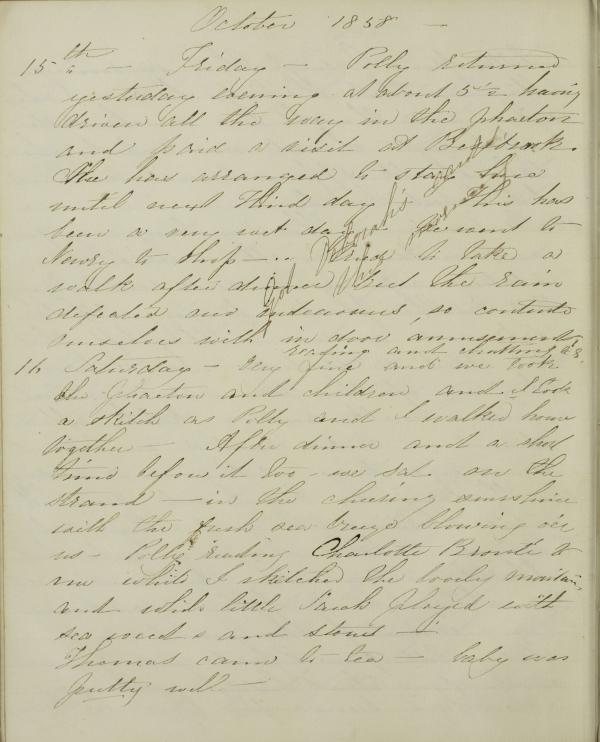 October 1858 —
15th — Friday — Polly returned
yesterday evening at about 5½ having
driven all the way in the phaeton
and paid a visit at Bessbrook.
She has arranged to stay here
until next Third day. This has
been a very wet day. We went to
Newry to shop — tried to take a
walk after dinner but the rain
defeated our endeavours, so contented
ourselves with in door amusements
reading and chatting &c.
16 Saturday — Very fine and we took
the phaeton and children and I took
a sketch as Polly and I walked home
together — After dinner and a short
time before it too — we sat on the
strand — in the cheering sunshine
with the fresh sea breeze blowing o'er
us — Polly reading Charlotte Bronté to
me while I sketched the lovely mountains,
and while little Sarah played with
sea weeds and stones —
Thomas came to tea — baby was
pretty well —